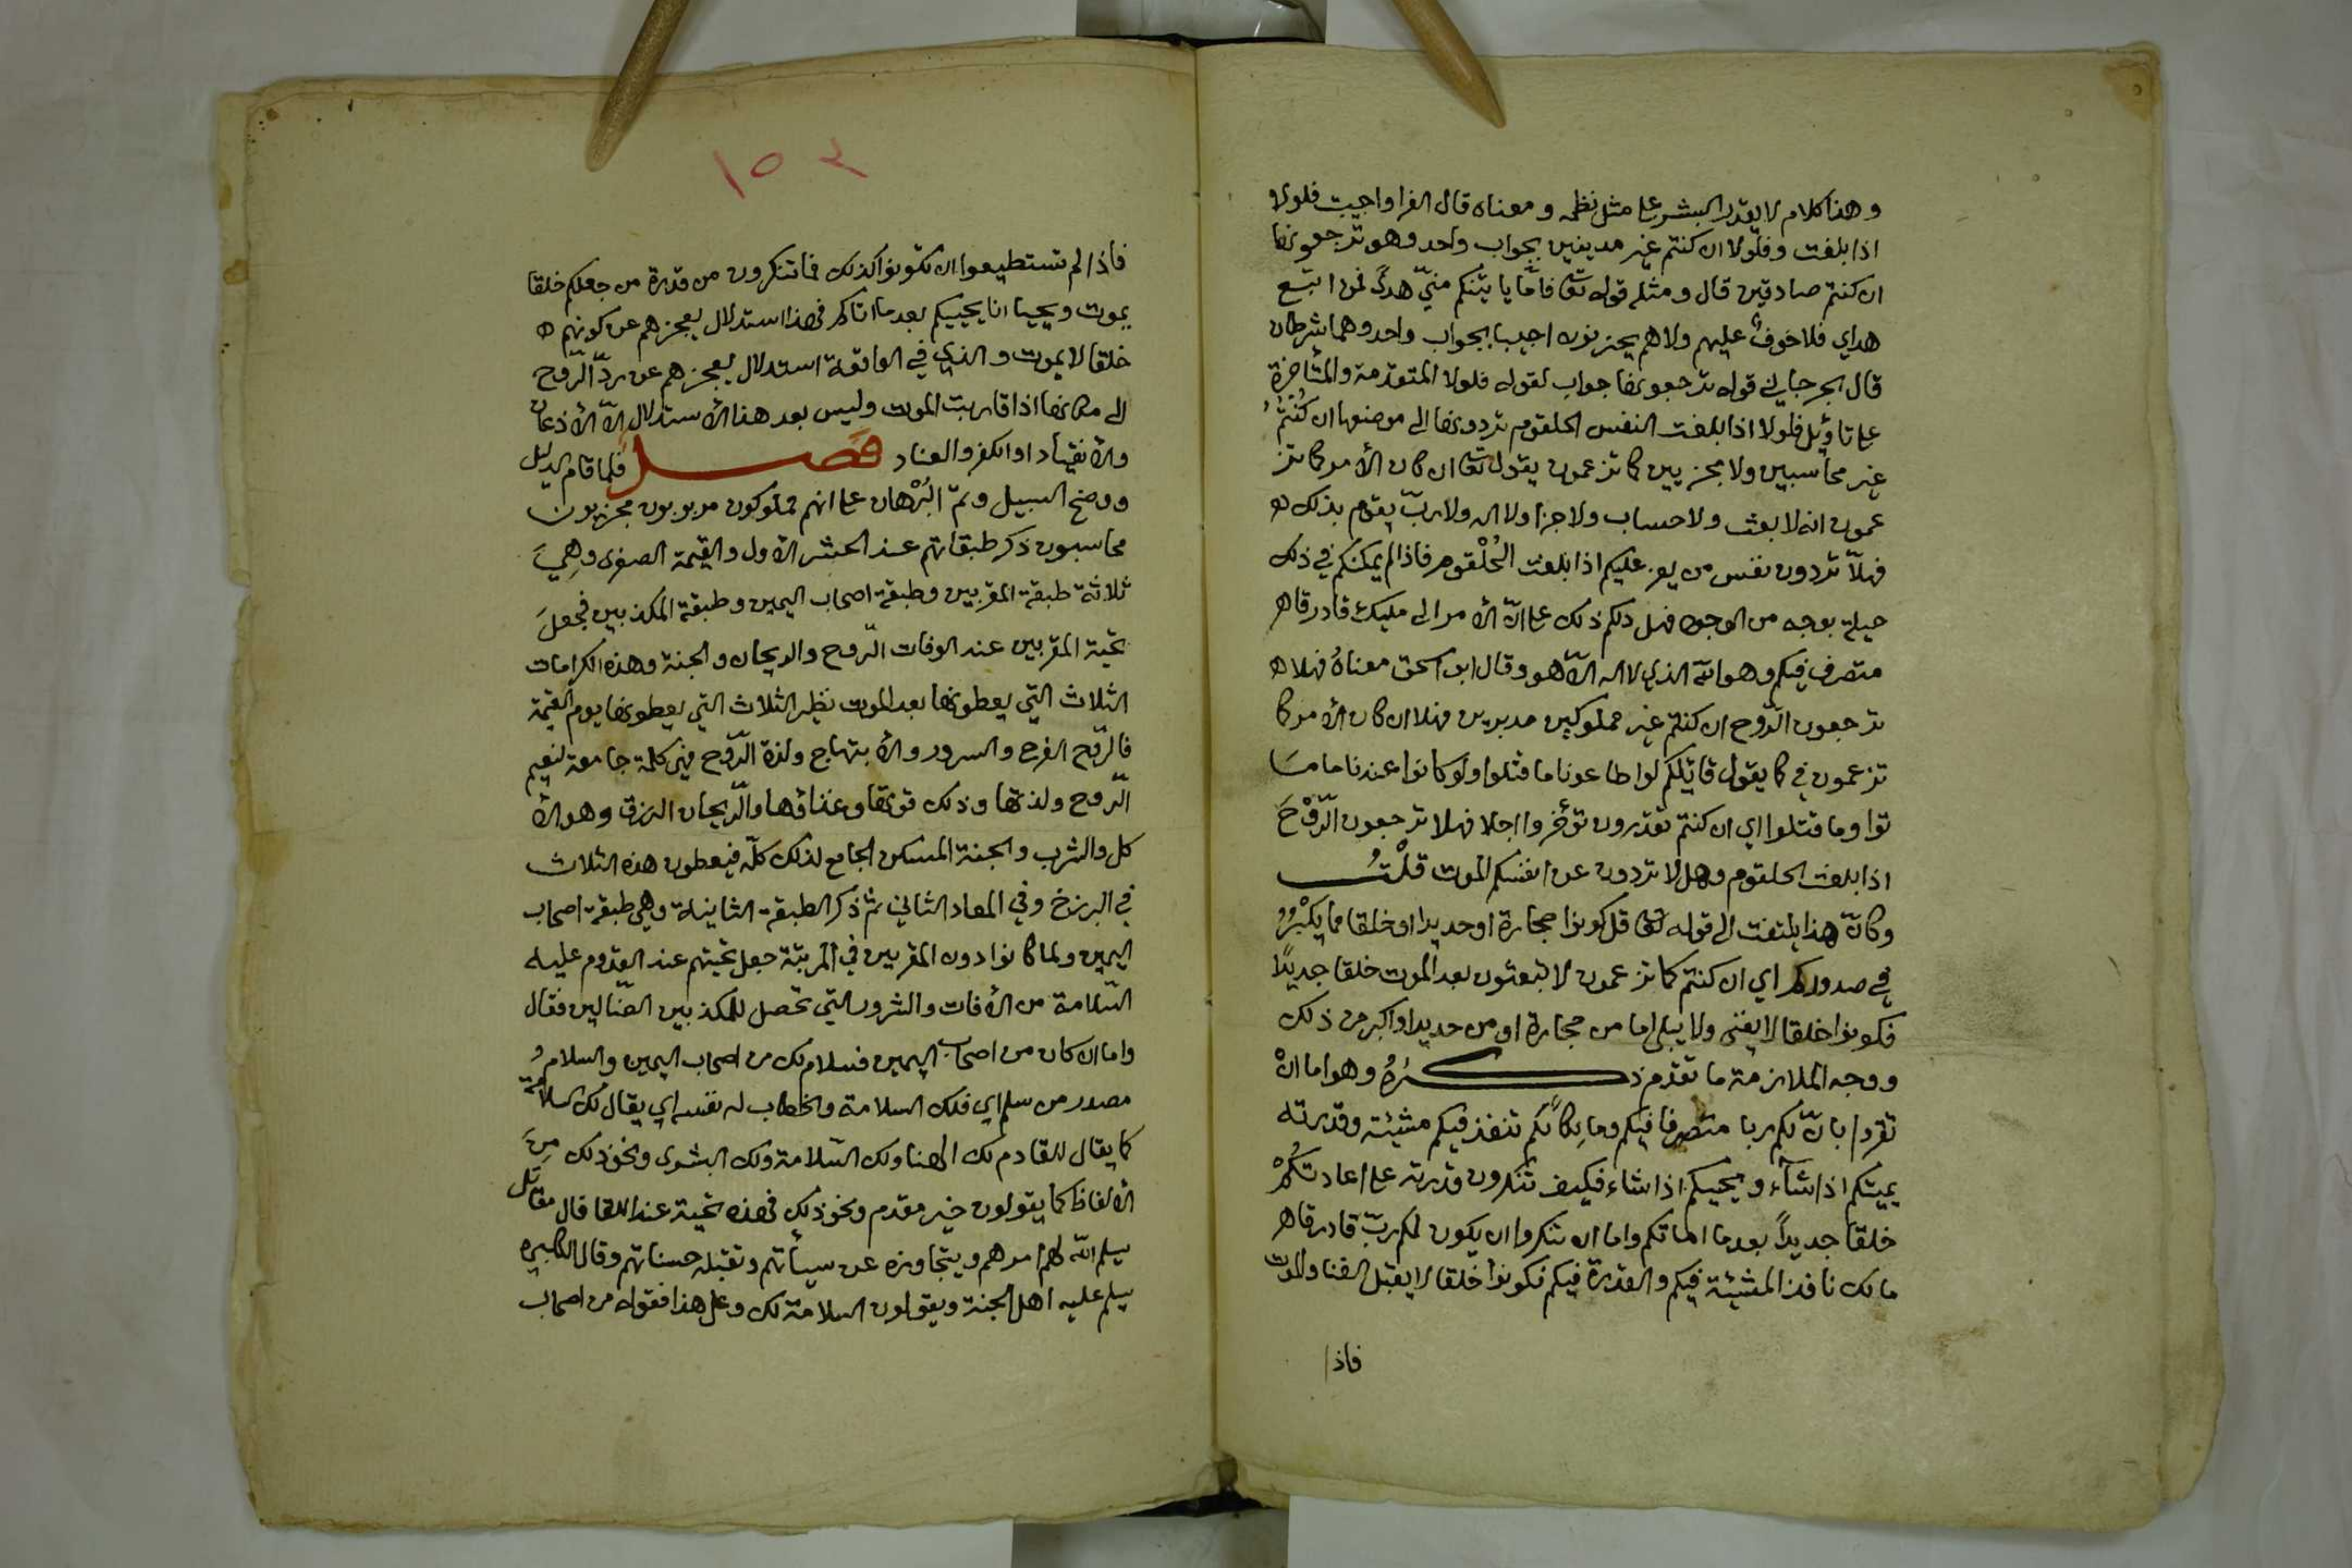 وهذا كلام لا يقدر البشر على مثل نظمه ومعناه قال الفرا واجيبت فلولا
اذا بلغت وفلولا ان كنتم غير مدينين بجواب واحد وهو ترجعونها
ان كنتم صادقين قال ومثله قوله تعا فامّا ياتينكم منّي هدىً فمن اتبع
هداي فلا خوفٌ عليهم ولا هم يحزنون اجيبا بجواب واحد وهما شرطان
قال الجرجاني قوله ترجعونها جواب لقوله فلولا المتقدمة والمتأخرة
على تأويل فلولا اذا بلغت النفس الحلقوم تردونها الى موضعها ان كُنتُمُ
غير محاسبين ولا مجزيين كما تزعمون يقول تعا ان كان الأمر كما تز
عمون انه لا بعث ولا حساب ولا جزا ولا اله ولا ربّ يقوم بذلك ه
فهلّا تردون نفس من يعز عليكم اذا بلغت الحُلْقوم فاذا لم يمكنكم في ذلك
حيلة بوجه من الوجوه فهل دلكم ذلك على انّ الأمر الى مليك قادر قاهر
متصرف فيكم وهو الله الذي لا اله الّا هو وقال ابو اسحق معناهُ فهلا ه
ترجعون الرّوح ان كنتم غير مملوكين مدبرين فهلا ان كان الأمر كما
تزعمون في كما يقول قائلكم لو اطاعونا ما قتلوا ولو كانوا عندنا ما مسَا
توا وما قتلوا اي ان كنتم تقدرون تؤخروا اجلا فهلا ترجعون الرّوْحَ
اذا بلغت الحلقوم وهل لا تردون عن انفسكم الموت قلْتُ
وكانّ هذا يلتفت الى قوله تعا قل كونوا حجارة او حديدا او خلقا مما يكْبُرُ
في صدوركم اي ان كنتم كما تزعمون لا تبعثون بعد الموت خلقا جديدًا
فكونوا خلقا لا يفنى ولا يبلى اما من حجارة او من حديد او اكبر من ذلك
ووجه الملازمة ما تقدم ذكــرُهُ وهو اما انْ
تقروا بانّ لكم ربا متصرفا فيكم ومالكا لكم تنفذ فيكم مشيئته وقدرته
يميتكم اذا شآء ويحييكم اذا شاء فكيف تنكرون قدرته على اعادتكُمْ
خلقا جديداً بعد ما اماتكم واما ان تنكروا ان يكون لكم ربّ قادر قاهر
مالك نافذ المشيئة فيكم والقدرة فيكم فكونوا خلقا لا يقبل الفنا والموت
فاذا
١٥٣
فاذا لم تستطيعوا ان تكونوا كذلك فما تنكرون من قدرة من جعلكم خلقا
يموت ويحيا ان يحييكم بعد ما اماتكم فهذا استدلال بعجزهم عن كونهم ه
خلقا لا يموت والذي في الواقعة استدلال بعجزهم عن ردّ الرّوح
الى مكانها اذا قاربت الموت وليس بعد هذا الأستدلال الّا الأذعان
والأنقياد او الكفر والعناد فَصــل فلما قام الدليل
ووضح السبيل وتمّ البُرْهان على انهم مملوكون مربوبون مجزيون
محاسبون ذكر طبقاتهم عند الحشر الأول والقيمة الصغرى وهِيَ
ثلاثة طبقة المقربين وطبقة اصحاب اليمين وطبقة المكذبين فجعلَ
تحية المقربين عند الوفات الرّوح والريحان والجنة وهذه الكرامات
الثلاث التي يعطونها بعد الموت نظير الثلاث التي يعطونها يوم القيمة
فالرّوح الفرح والسرور والأبتهاج ولذة الرّوح فهي كلمة جامعة لنعيم
الرّوح ولذتها وذلك قوتها وغذاؤها والرّيحان الرزق وهو الأ
كل والشرب والجنة المسكن الجامع لذلك كلّه فيعطون هذه الثلاث
في البرزخ وفي المعاد الثاني ثم ذكر الطبقة الثانية وهي طبقة اصحاب
اليمين ولما كانوا دون المقربين في المرتبة جعل تحيتهم عند القدوم عليه
السّلامة من الأفات والشرور التي تحصل للمكذبين الضّالين فقال
واما ان كان من اصحاب اليمين فسلام لك من اصحاب اليمين والسلام
مصدر من سلم اي فلك السلامة والخطاب له نفسه اي يقال لك السلامة
كما يقال للقادم لك الهنا ولك السّلامة ولك البشرى ونحو ذلك مِنَ
الألفاظ كما يقولون خير مقدم ونحو ذلك فهذه تحية عند اللقا قال مقاتل
يسلم الله لهم امرهم ويتجاوزه عن سيأتهم وتقبله حسناتهم وقال الكلبي
يسلم عليه اهل الجنة ويقولون السلامة لك وعلى هذا فقوله من اصحاب